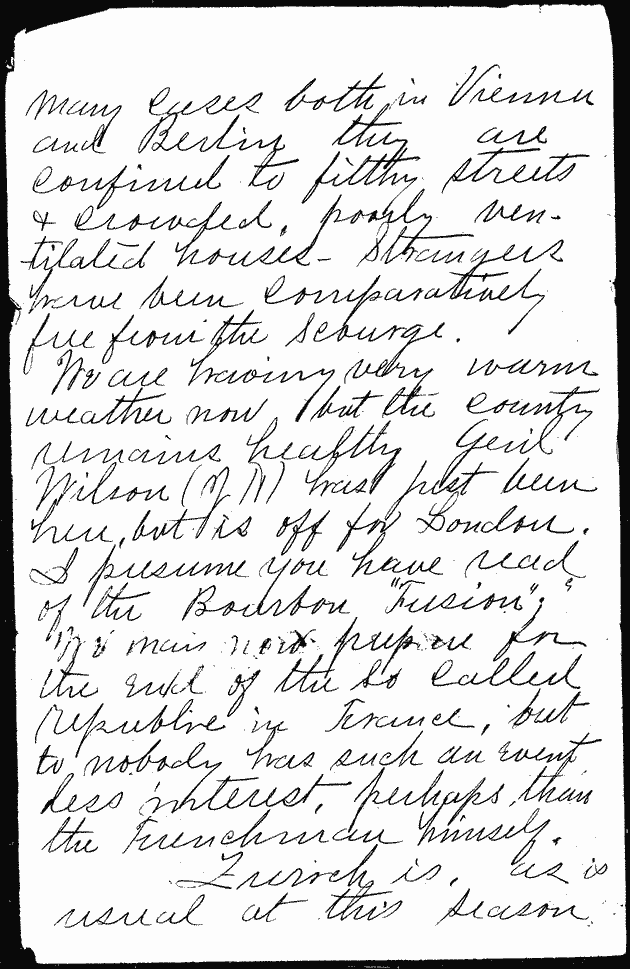 many cases both in Vienna
and Berlin they are
confined to filthy streets
& crowded, poorly ven-
tilated houses - Strangers
have been comparatively
free from the scourge.
We are having very warm
weather now, but the country
remains healthy Genl
Wilson (of N) has just been
here, but is off for London.
I presume you have read
of the Bourbon "Fusion";
We may now prepare for
the end of the so called
republic in France, but
to nobody has such an event
less interest, perhaps, than
the Frenchman himself.
Zurich is, as is
usual at this season